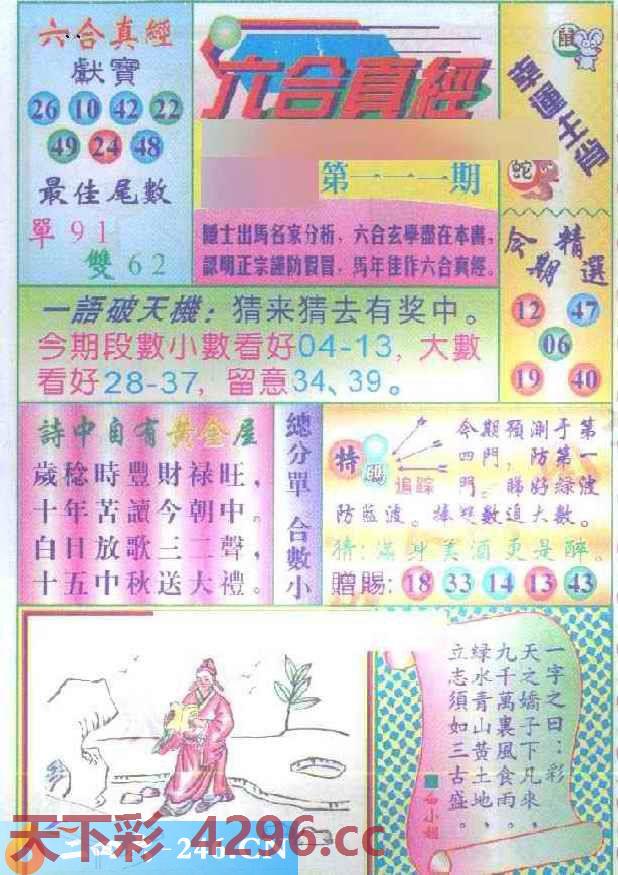 六合真經
獻寶
26 10 42 22
49 24 48
最佳尾數
單91
雙62
六合真經
第一一一期
隱士出馬名家分析，六合玄學盡在本書，
認明正宗謹防假冒，馬年佳作六合真經。
鼠
幸運生肖
蛇
今期精選
12 47
06
19 40
一語破天機：猜来猜去有奖中。
今期段數小數看好04-13，大數
看好28-37，留意34、39。
詩中自有黃金屋
歲稔時豐財禄旺，
十年苦讀今朝中。
白日放歌三二聲，
十五中秋送大禮。
總分單 合數小
特碼
追踪
今期預測于第
四門，防第一
門。睇好緑波
防藍波。捧雙數追大數。
猜：滿身美酒更是醉。
贈賜：18 33 14 13 43
一字之曰：彩
天之嬌子下凡來，
九千萬裏風食雨。
绿水青山黃土地，
立志須如三古盛。
小姐
天下彩 4296.cc
246.CN